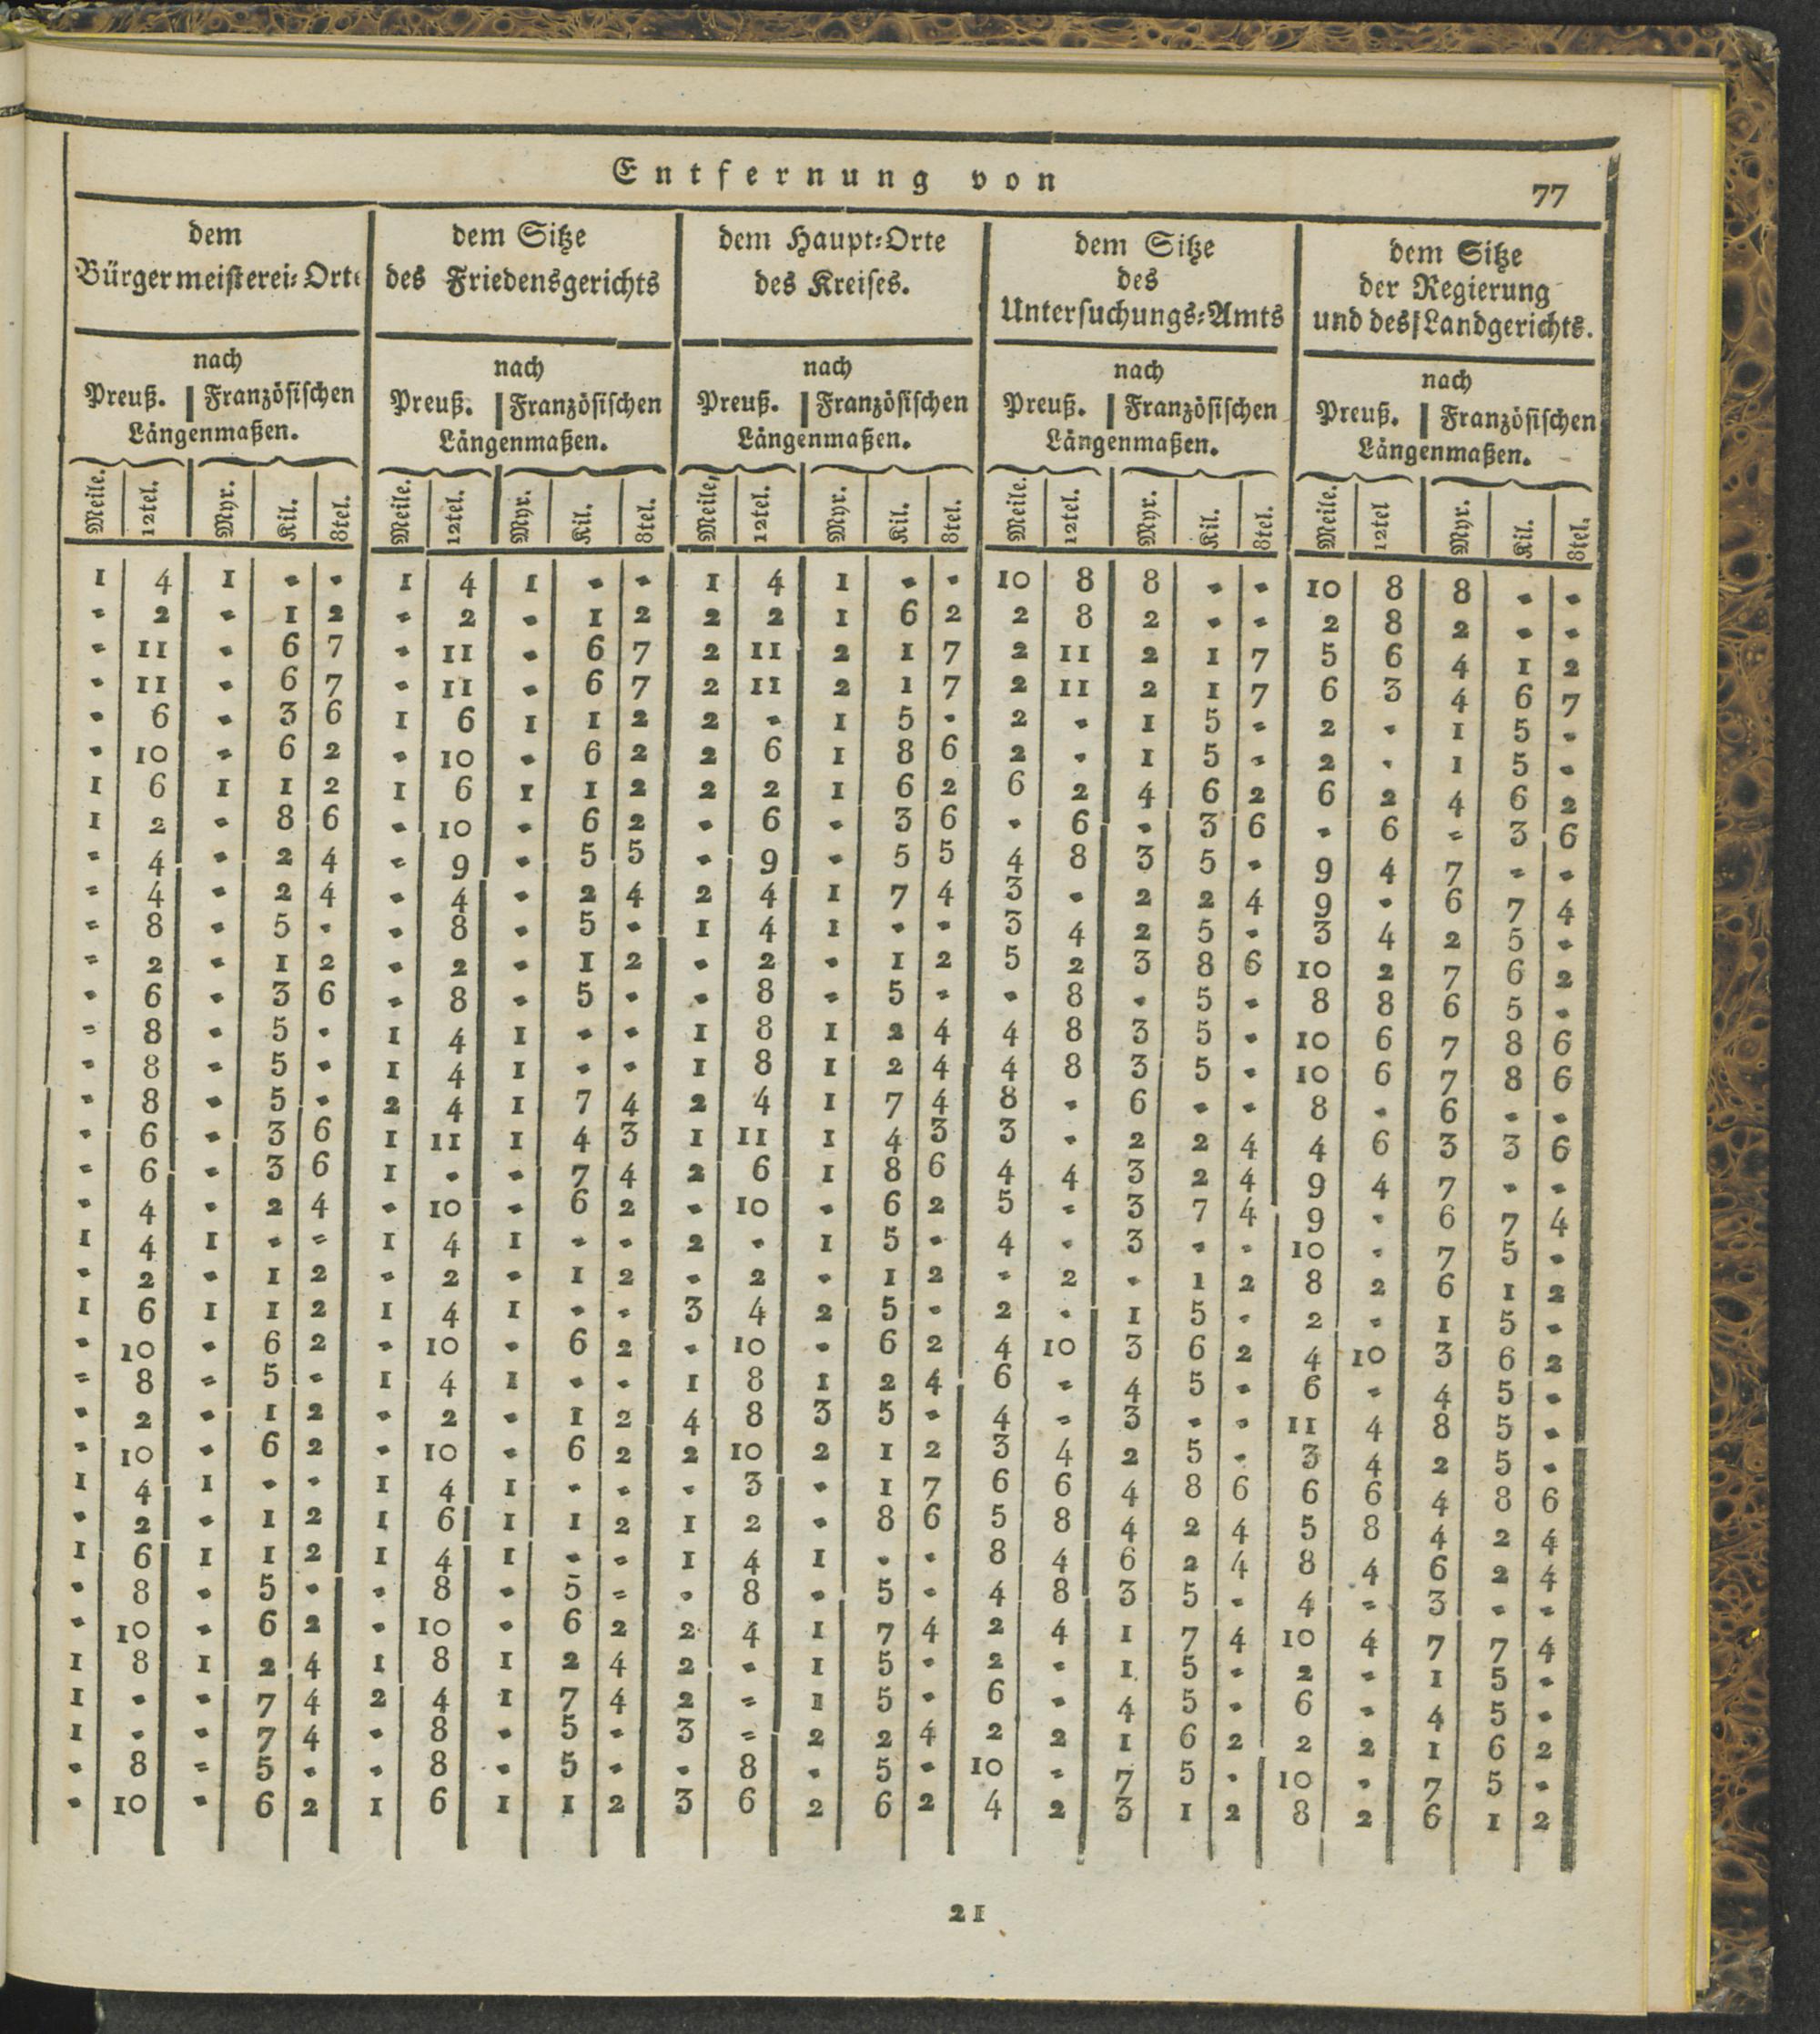 Entfernung von
77
dem Bürgermeisterei-Orte | dem Sitze des Friedensgerichts | dem Haupt-Orte des Kreises. | dem Sitze des Untersuchungs-Amts | dem Sitze der Regierung und des Landgerichts.
nach | nach | nach | nach | nach
Preuß. | Französischen | Preuß. | Französischen | Preuß. | Französischen | Preuß. | Französischen | Preuß. | Französischen
Längenmaßen. | Längenmaßen. | Längenmaßen. | Längenmaßen. | Längenmaßen.
Meile. 12tel. Myr. Kil. 8tel. | Meile. 12tel. Myr. Kil. 8tel. | Meile. 12tel. Myr. Kil. 8tel. | Meile. 12tel. Myr. Kil. 8tel. | Meile. 12tel Myr. Kil. 8tel.
1 4 1 - - | 1 4 1 - - | 1 4 1 - - | 10 8 8 - - | 10 8 8 - -
- 2 - 1 2 | - 2 - 1 2 | 2 2 1 6 2 | 2 8 2 - - | 2 8 2 - -
- 11 - 6 7 | - 11 - 6 7 | 2 11 2 1 7 | 2 11 2 1 7 | 5 6 4 1 2
- 11 - 6 7 | - 11 - 6 7 | 2 11 2 1 7 | 2 11 2 1 7 | 6 3 4 6 7
- 6 - 3 6 | 1 6 1 1 2 | 2 - 1 5 - | 2 - 1 5 - | 2 - 1 5 -
- 10 - 6 2 | - 10 - 6 2 | 2 6 1 8 6 | 2 - 1 5 - | 2 - 1 5 -
1 6 1 1 2 | 1 6 1 1 2 | 2 2 1 6 2 | 6 2 4 6 2 | 6 2 4 6 2
1 2 - 8 6 | - 10 - 6 2 | - 6 - 3 6 | - 6 - 3 6 | - 6 - 3 6
- 4 - 2 4 | - 9 - 5 5 | - 9 - 5 5 | 4 8 3 5 - | 9 4 7 - -
- 4 - 2 4 | - 4 - 2 4 | 2 4 1 7 4 | 3 - 2 2 4 | 9 - 6 7 4
- 8 - 5 - | - 8 - 5 - | 1 4 1 - - | 3 4 2 5 - | 3 4 2 5 -
- 2 - 1 2 | - 2 - 1 2 | - 2 - 1 2 | 5 2 3 8 6 | 10 2 7 6 2
- 6 - 3 6 | - 8 - 5 - | - 8 - 5 - | - 8 - 5 - | 8 8 6 5 -
- 8 - 5 - | 1 4 1 - - | 1 8 1 2 4 | 4 8 3 5 - | 10 6 7 8 6
- 8 - 5 - | 1 4 1 - - | 1 8 1 2 4 | 4 8 3 5 - | 10 6 7 8 6
- 8 - 5 - | 2 4 1 7 4 | 2 4 1 7 4 | 8 - 6 - - | 8 - 6 - -
- 6 - 3 6 | 1 11 1 4 3 | 1 11 1 4 3 | 3 - 2 2 4 | 4 6 3 3 6
- 6 - 3 6 | 1 - - 7 4 | 2 6 1 8 6 | 4 4 3 2 4 | 9 4 7 - -
- 4 - 2 4 | - 10 - 6 2 | - 10 - 6 2 | 5 - 3 7 4 | 9 - 6 7 4
1 4 1 - - | 1 4 1 - - | 2 - 1 5 - | 4 - 3 - - | 10 - 7 5 -
- 2 - 1 2 | - 2 - 1 2 | - 2 - 1 2 | - 2 - 1 2 | 8 2 6 1 2
1 6 1 1 2 | 1 4 1 - - | 3 4 2 5 - | 2 - 1 5 - | 2 - 1 5 -
- 10 - 6 2 | - 10 - 6 2 | - 10 - 6 2 | 4 10 3 6 2 | 4 10 3 6 2
- 8 - 5 - | 1 4 1 - - | 1 8 1 2 4 | 6 - 4 5 - | 6 - 4 5 -
- 2 - 1 2 | - 2 - 1 2 | 4 8 3 5 - | 4 - 3 - - | 11 4 8 5 -
- 10 - 6 2 | - 10 - 6 2 | 2 10 2 1 2 | 3 4 2 5 - | 3 4 2 5 -
1 4 1 - - | 1 4 1 - - | - 3 - 1 7 | 6 6 4 8 6 | 6 6 4 8 6
- 2 - 1 2 | 1 6 1 1 2 | 1 2 - 8 6 | 5 8 4 2 4 | 5 8 4 2 4
1 6 1 1 2 | 1 4 1 - - | 1 4 1 - - | 8 4 6 2 4 | 8 4 6 2 4
- 8 - 5 - | - 8 - 5 - | - 8 - 5 - | 4 8 3 5 - | 4 - 3 - -
- 10 - 6 2 | - 10 - 6 2 | 2 4 1 7 4 | 2 4 1 7 4 | 10 4 7 7 4
1 8 1 2 4 | 1 8 1 2 4 | 2 - 1 5 - | 2 - 1 5 - | 2 - 1 5 -
1 - - 7 4 | 2 4 1 7 4 | 2 - 1 5 - | 6 - 4 5 - | 6 - 4 5 -
1 - - 7 4 | - 8 - 5 - | 3 - 2 2 4 | 2 2 1 6 2 | 2 2 1 6 2
- 8 - 5 - | - 8 - 5 - | - 8 - 5 - | 10 - 7 5 - | 10 - 7 5 -
- 10 - 6 2 | 1 6 1 1 2 | 3 6 2 6 2 | 4 2 3 1 2 | 8 2 6 1 2
21